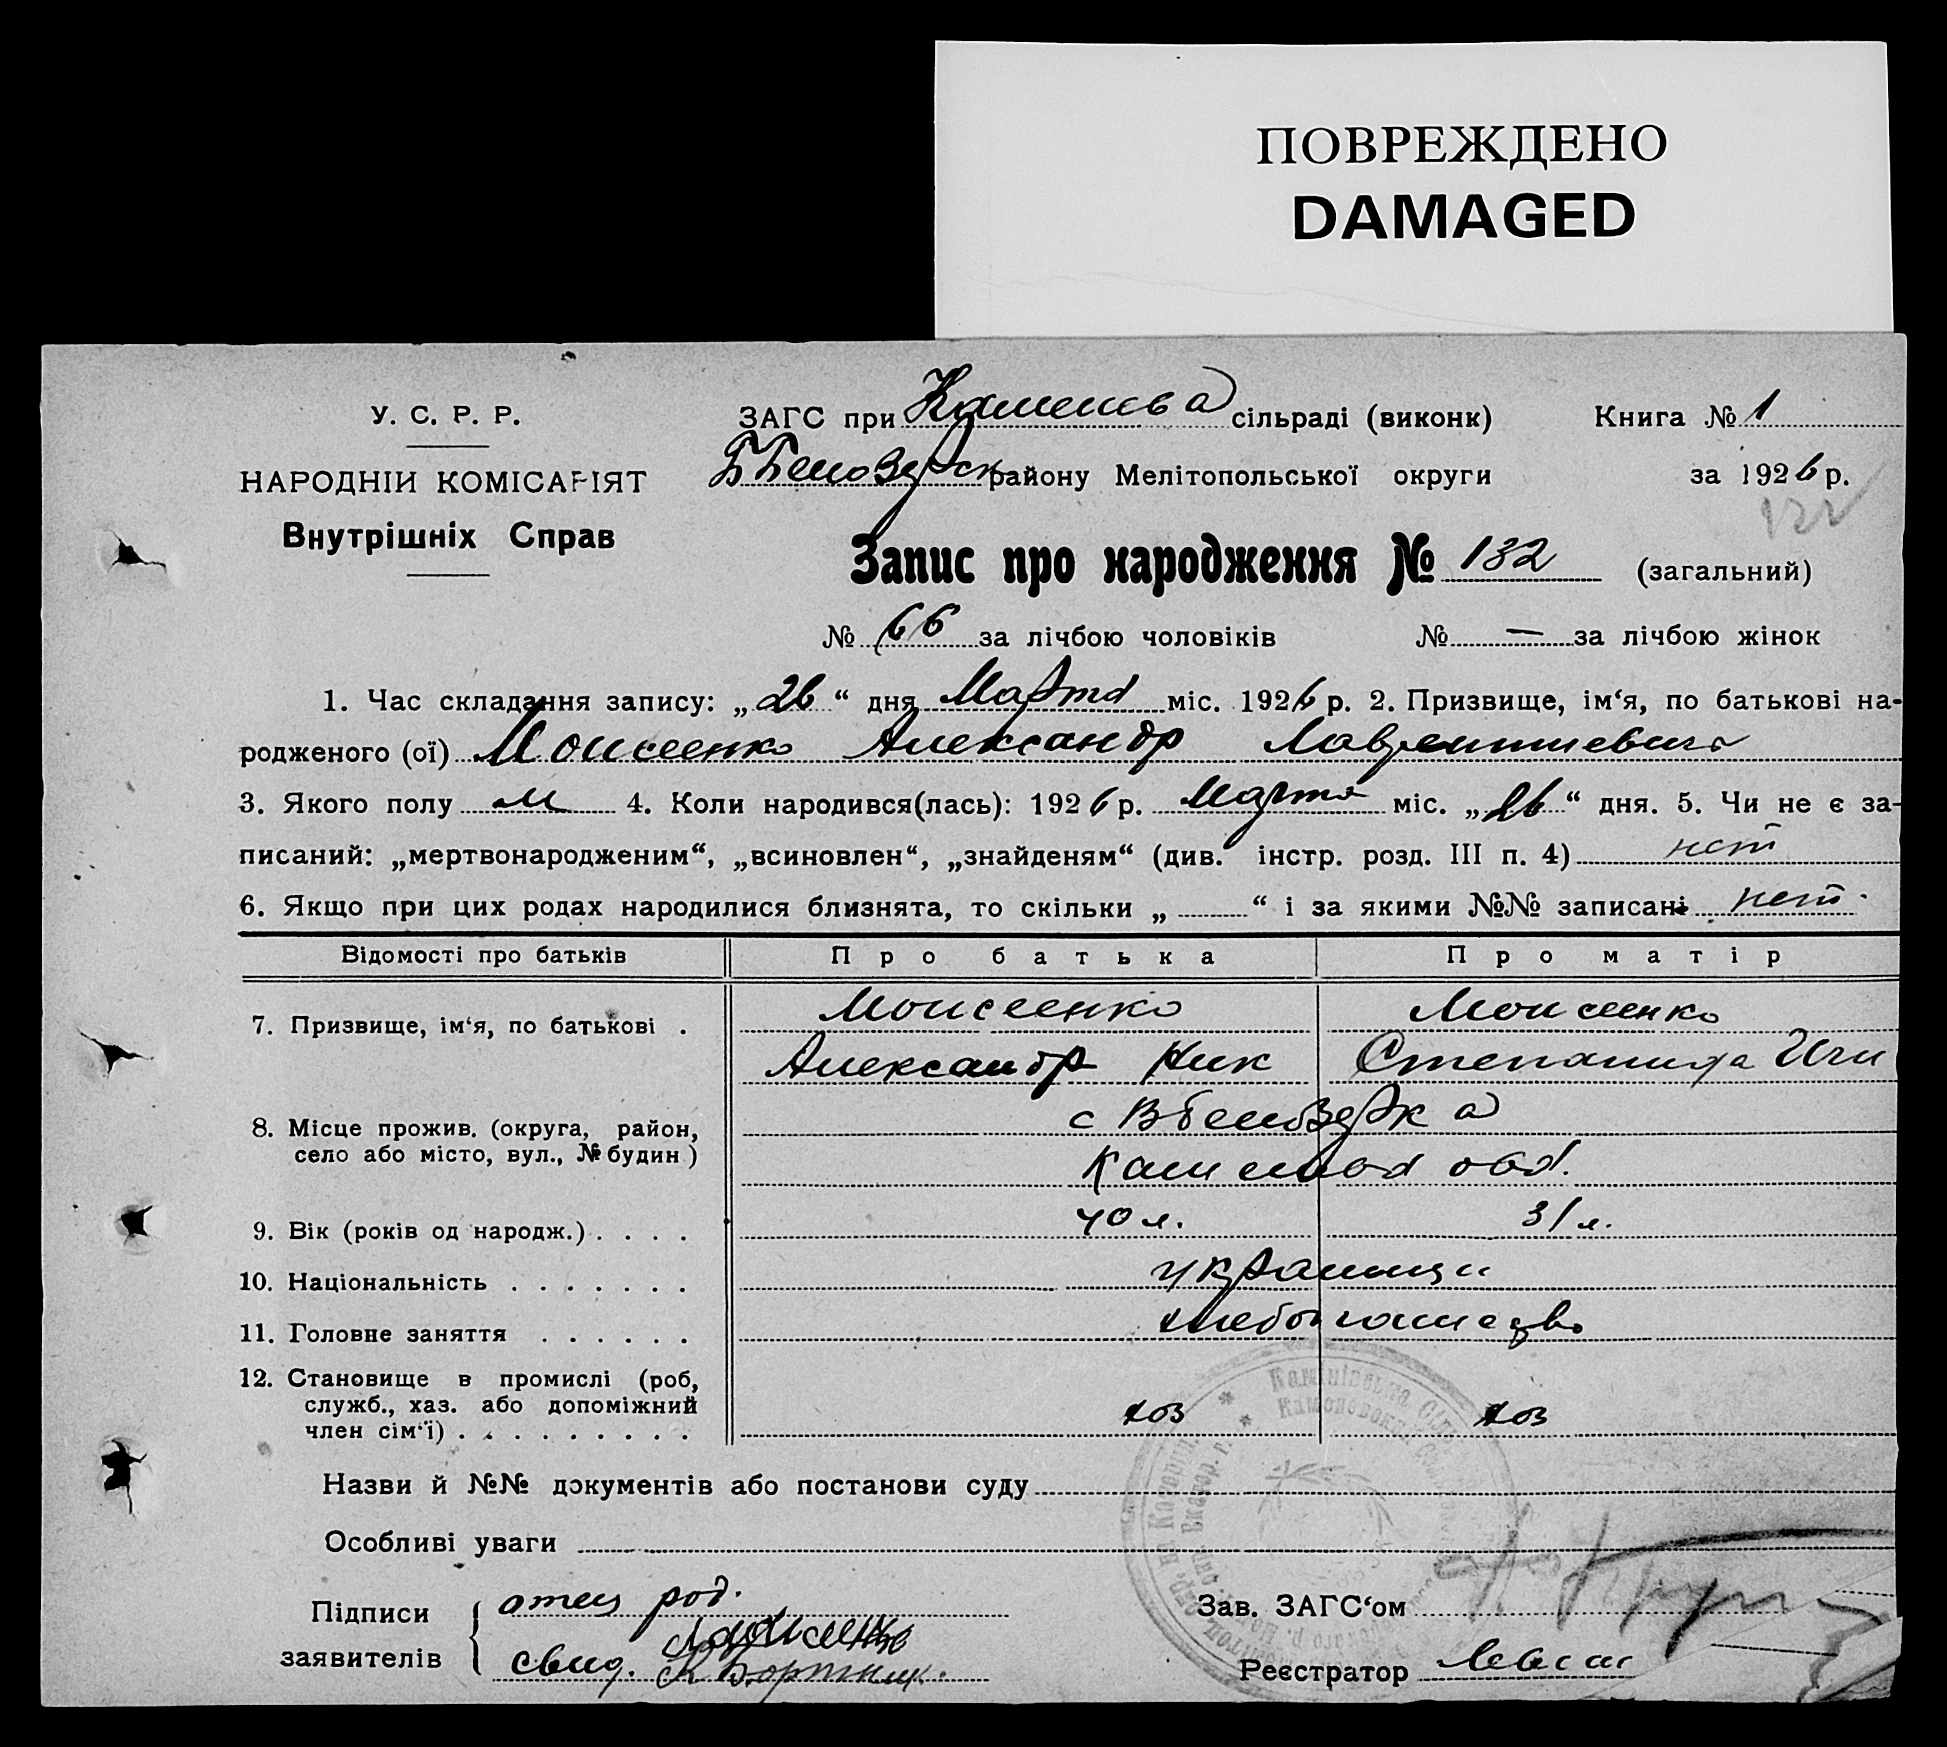 ПОВРЕЖДЕНО
DAMAGED
У. С. Р. Р.
ЗАГС при Каменева сільраді (виконк) Книга № 1
НАРОДНІЙ КОМІСАРІЯТ
району Мелітопольської округи за 1926 р.
Внутрішніх Справ
Запис про народження № 132 (загальний)
№ 66 за лічбою чоловіків № — за лічбою жінок
1. Час складання запису: „ 26 “ дня Марта міс. 1926 р. 2. Призвище, ім‘я, по батькові на-
родженого (ої) Моисеенко Александр Лаврентиевич
3. Якого полу м 4. Коли народився(лась): 1926 р. Марта міс. „ 26 “ дня. 5. Чи не є за-
писаний: „мертвонародженим“, „всиновлен“, „знайденям“ (див. інстр. розд. III п. 4) нет
6. Якщо при цих родах народилися близнята, то скільки „ “ і за якими №№ записані нет.
Відомості про батьків Про батька Про матір
7. Призвище, ім‘я, по батькові . Моисеенко Моисеенко
Александр Ник Степанида
8. Місце прожив. (округа, район,
село або місто, вул., № будин) с В Белозерка
9. Вік (років од народж.) . . . . 40 л. 31 л.
10. Національність . . . . . . . украинцы
11. Головне заняття . . . . . . хлебопашество
12. Становище в промислі (роб,
служб., хаз. або допоміжний
член сім‘ї) . . . . . . . . . хоз хоз
Назви й №№ документів або постанови суду
Особливі уваги
Підписи отец род.
заявителів свид.
Зав. ЗАГС‘ом
Реєстратор